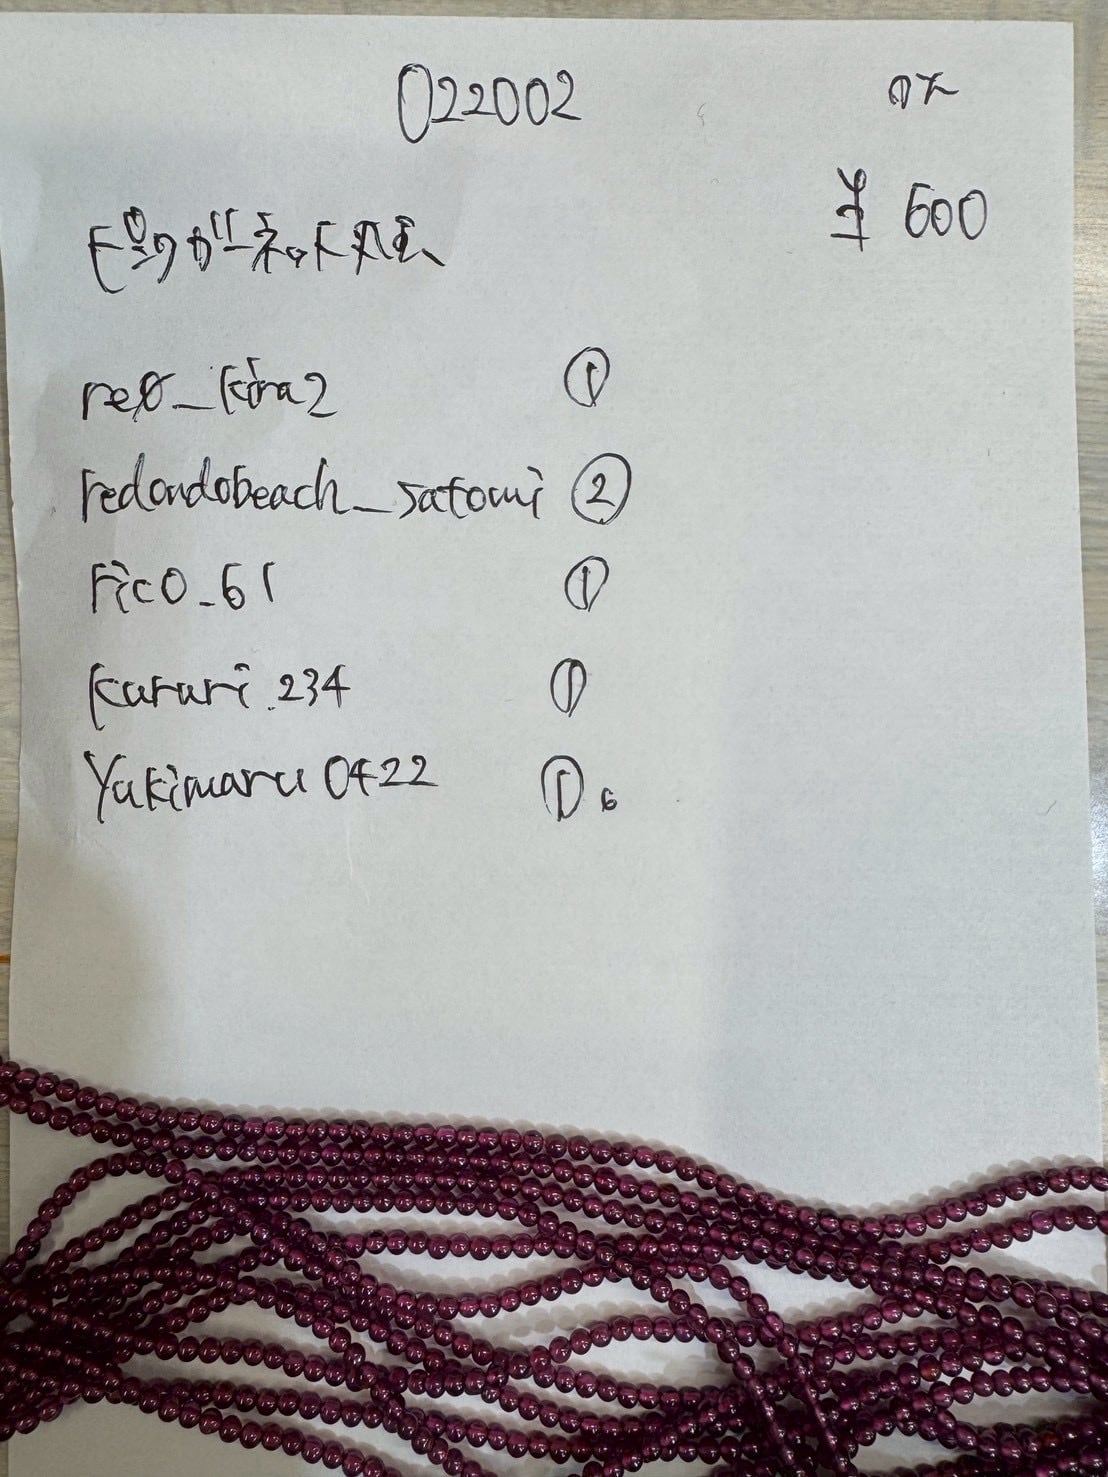 022002
¥ 600
reo_kira2 ①
redondobeach_satomi ②
rico_61 ①
karari.234 ①
Yukimaru0422 ① 6